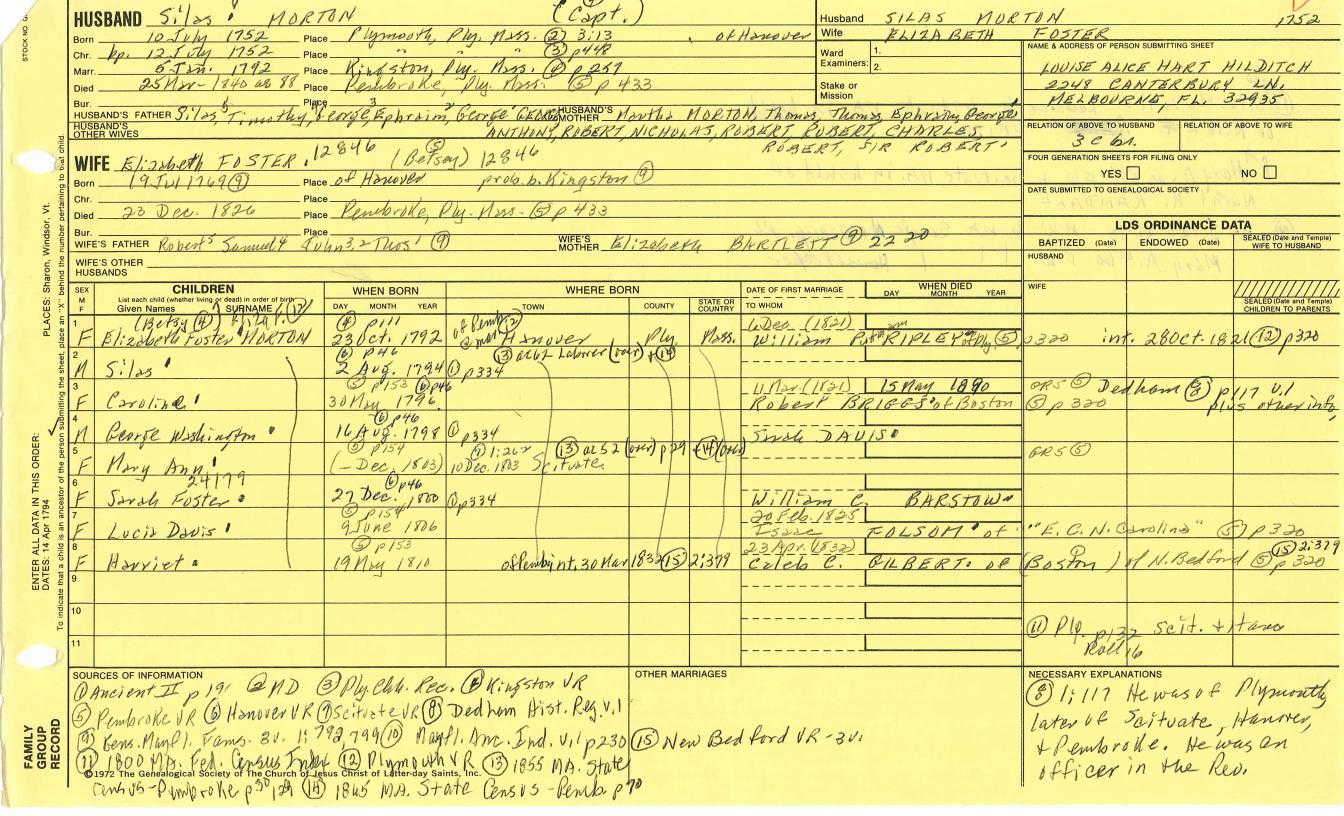 HUSBAND Silas MORTON (Capt.)
Born 10 July 1752 Place Plymouth, Ply. Mass. (2) 3:13 , of Hanover
Chr. bp. 12 July 1752 Place " " " (3) p448
Marr. 5 Jan. 1792 Place Kingston, Ply. Mass. (4) p 257
Died 25 Mar - 1840 ae 88 Place Pembroke, Ply. Mass. (5) p 433
Bur. Place
HUSBAND'S FATHER Silas, Timothy, George, Ephraim, George George HUSBAND'S MOTHER Martha MORTON, Thomas, Thomas Ephraim, George
HUSBAND'S OTHER WIVES ANTHONY, ROBERT, NICHOLAS, ROBERT, ROBERT, CHARLES,
ROBERT, SIR ROBERT
Husband SILAS MORTON 1752
Wife ELIZABETH FOSTER
Ward Examiners: 1.
2.
Stake or Mission
NAME & ADDRESS OF PERSON SUBMITTING SHEET
LOUISE ALICE HART HILDITCH
2248 CANTERBURY LN.
MELBOURNE, FL. 32935
RELATION OF ABOVE TO HUSBAND RELATION OF ABOVE TO WIFE
FOUR GENERATION SHEETS FOR FILING ONLY
YES NO
DATE SUBMITTED TO GENEALOGICAL SOCIETY
WIFE Elizabeth FOSTER, 12846 (Betsey) (5) 12846
Born 19 Jul 1769 (9) Place of Hanover prob. b. Kingston (9)
Chr. Place
Died 23 Dec. 1826 Place Pembroke, Ply. Mass. (5) p 433
Bur. Place
WIFE'S FATHER Robert5 Samuel4 John3,2 Thos1 (9) WIFE'S MOTHER Elizabeth BARTLETT (9) 2220
WIFE'S OTHER HUSBANDS
LDS ORDINANCE DATA
BAPTIZED (Date) ENDOWED (Date) SEALED (Date and Temple) WIFE TO HUSBAND
HUSBAND
WIFE
SEALED (Date and Temple) CHILDREN TO PARENTS
SEX M F
CHILDREN
List each child (whether living or dead) in order of birth
Given Names SURNAME
WHEN BORN
DAY MONTH YEAR
WHERE BORN
TOWN COUNTY STATE OR COUNTRY
DATE OF FIRST MARRIAGE
TO WHOM
WHEN DIED
DAY MONTH YEAR
(Betsy (4)) (12) (4) p111 of Pemb (12) 6 Dec. (1821)
1 F Elizabeth Foster MORTON 23 Oct. 1792 Hanover Ply Mass. William RIPLEY of Ply. (5) p320 int. 28 Oct. 1821 (12) p320
2 M Silas (6) p46 2 Aug. 1794 (1) p334 (13) ae 62 Laborer (over) + (14)
3 F Caroline (5) p153 (6) p46 30 May 1796 11 Mar (1821) 15 May 1890 Robert BRIGGS of Boston GRS (5) Dedham (8) p117 v.1 (5) p 320 plus other info,
4 M George Washington (6) p46 16 Aug. 1798 (1) p334 Sarah DAVIS
5 F Mary Ann (5) p154 (- Dec, 1803) 10 Dec. 1803 Scituate (13) ae 52 (over) p 29 + (14) (over) GRS (5)
24179
6 F Sarah Foster (6) p46 27 Dec. 1800 (1) p334 William C. BARSTOW
7 F Lucia Davis (5) p154 9 June 1806 20 Feb. 1825 Isaac FOLSOM of "E. C. N. Carolina" (5) p 320
8 F Harriet (5) p153 19 May 1810 of Pemb int. 30 Mar 1832 (15) 2:379 23 Apr. (1832) Caleb C. GILBERT of (Boston) of N. Bedford (5) p 320 (15) 2:379
9
10
11
(11) Ply. p132 Scit. +
Roll 16
SOURCES OF INFORMATION
(1) Ancient II p 191 (2) MD (3) Ply. Chh. Rec. (4) Kingston VR
(5) Pembroke VR (6) Hanover VR (7) Scituate VR (8) Dedham Hist. Reg. v.1
(9) Gens. Mayfl. Fams. 3v. 1:792,799 (10) Mayfl. Anc. Ind. v.1 p230
(11) 1800 MA. Fed. Census Index (12) Plymouth VR (13) 1855 MA. State
©1972 The Genealogical Society of The Church of Jesus Christ of Latter-day Saints, Inc.
Census - Pembroke (14) 1865 MA. State Census - Pemb. p 70
OTHER MARRIAGES
(15) New Bedford VR - 3v.
NECESSARY EXPLANATIONS
(8) 1:117 He was of Plymouth
later of Scituate, Hanover,
+ Pembroke. He was an
officer in the Rev.
FAMILY GROUP RECORD
ENTER ALL DATA IN THIS ORDER:
DATES: 14 Apr 1794
PLACES: Sharon, Windsor, Vt.
To indicate that a child is an ancestor of the person submitting the sheet, place an "X" behind the number pertaining to that child.